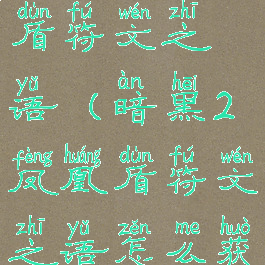 dùn fú wén zhī
盾符文之
yǔ àn hēi
语(暗黑2
fèng huáng dùn fú wén
凤凰盾符文
zhī yǔ zěn me huò
之语怎么获